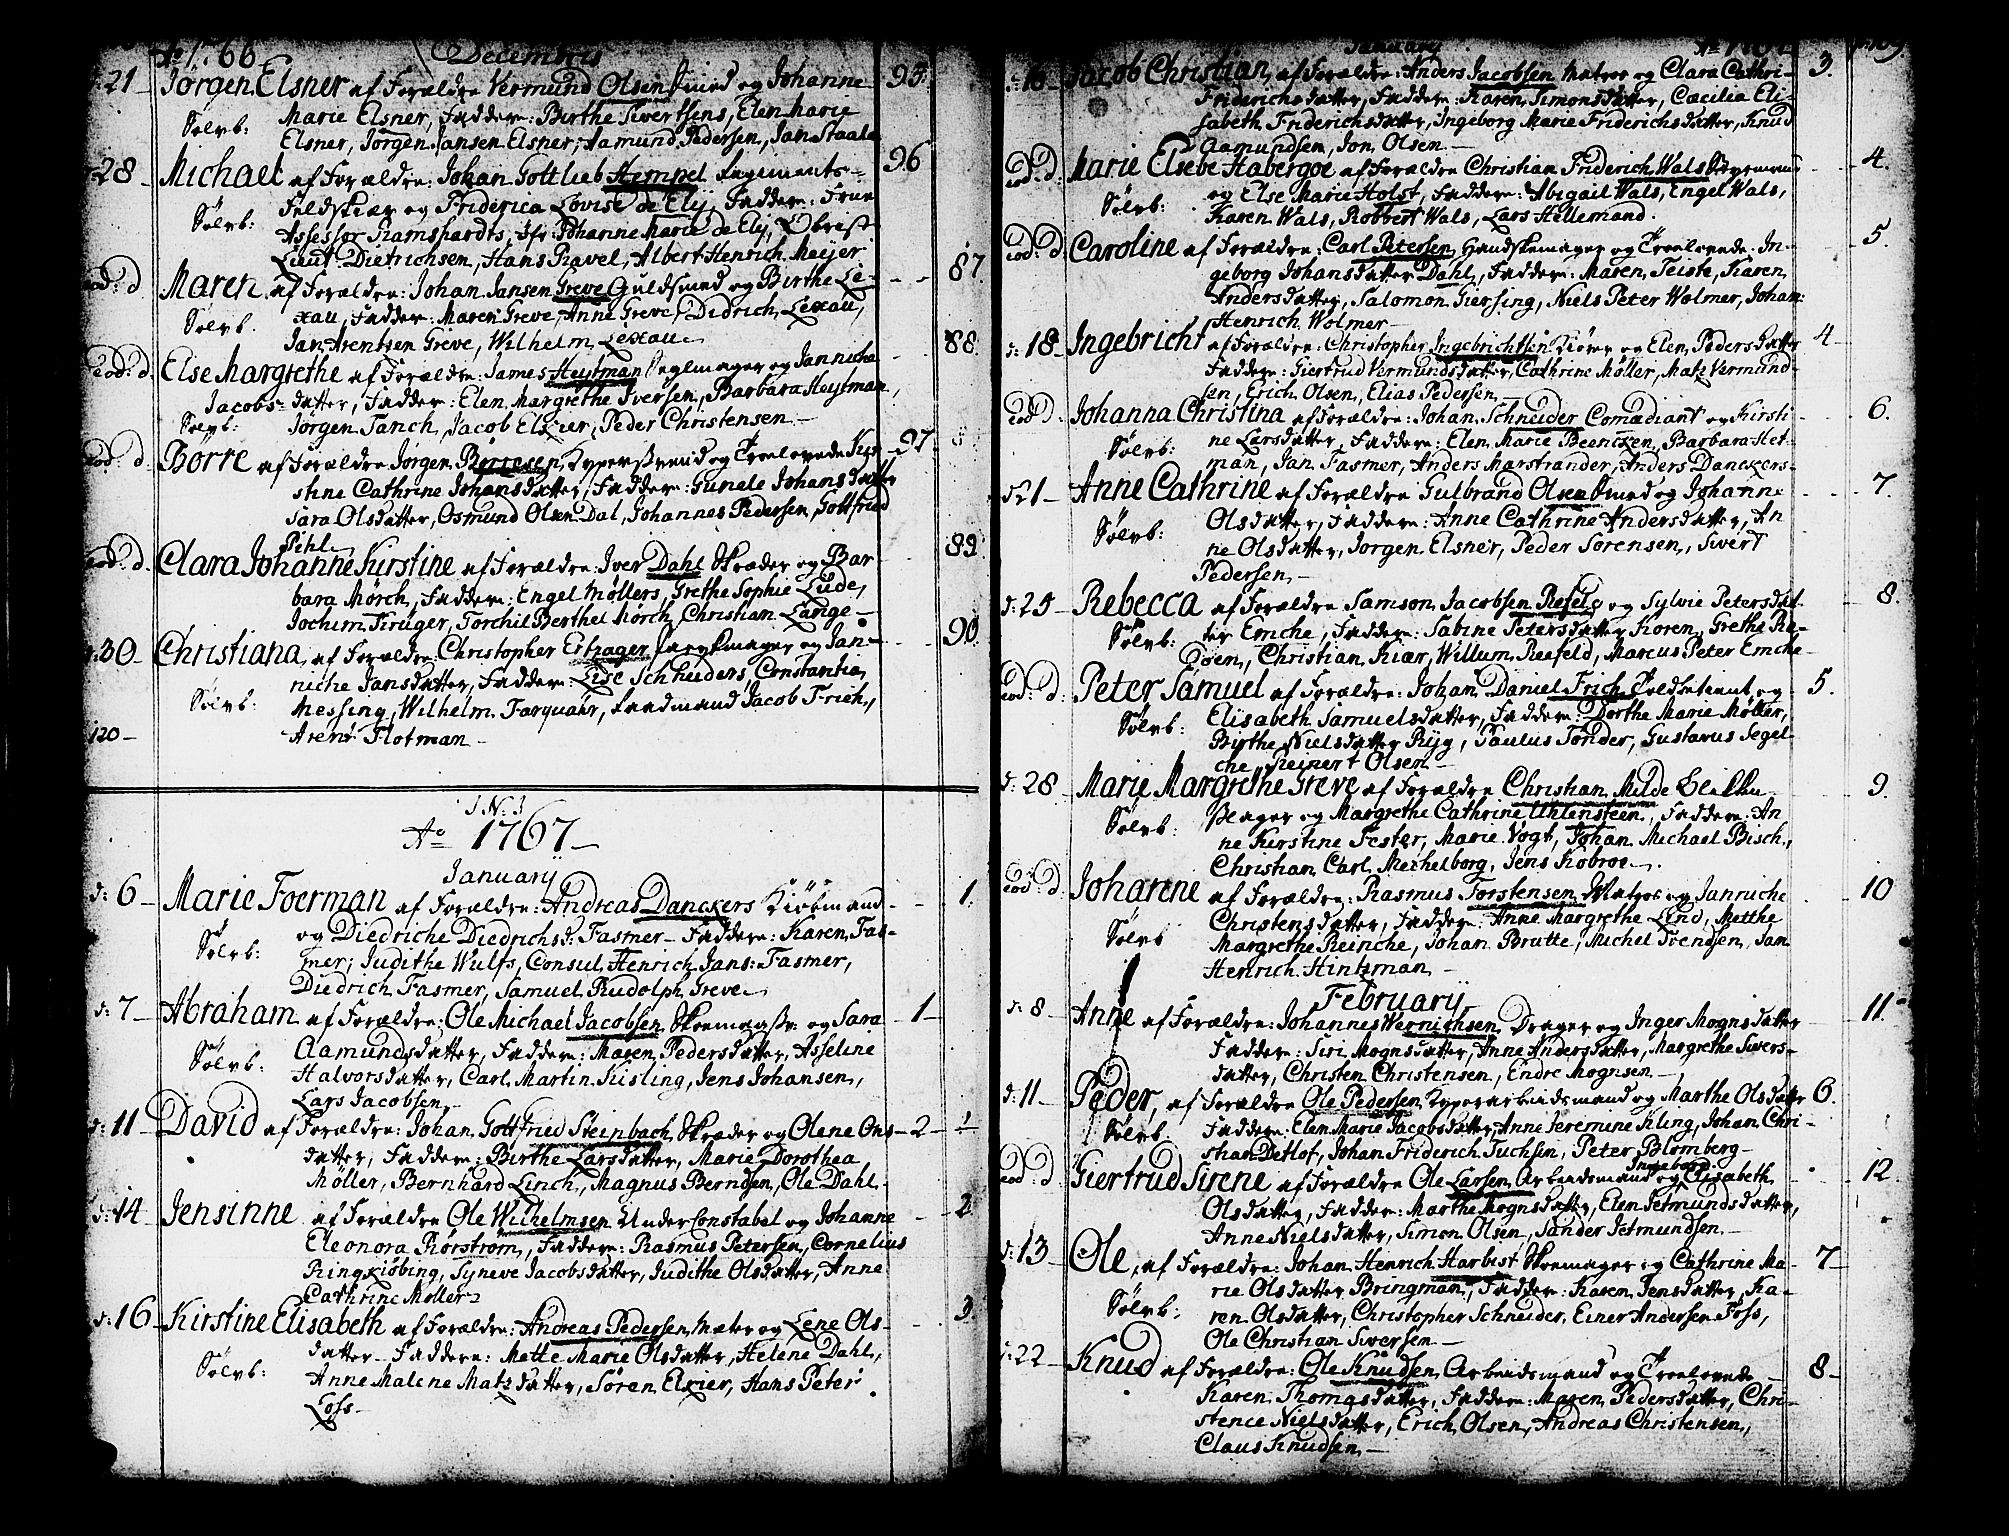 Ao 1766 Decembris
d: 21 Jørgen Elsner af Forældre Vermund Olsen Smed og Johanne 95.
Marie Elsner, Faddere: Birthe Siverthens, Elen Marie
Sølvb: Elsner, Jørgen Jansen Elsner, Aamund Pedersen, Jan Staale
d: 28 Michael af Forældre: Johan Gottlieb Hempel Regiments- 96
Feldskiær og Friderica Lovise de Elÿ, Faddere: Frue
Sølvb: Assessor Ramshardts, Jfr Johanne Marie de Elÿ, Obrist
Lieut: Dietrichsen, Hans Ravel, Albert Henrich Meÿer
eod: d Maren af Forældre: Johan Jansen Greve Guldsmed og Birthe Le- 87
xau, Faddere: Maren Greve, Anne Greve, Didrich Lexau,
Sølvb. Jan Arentsen Greve, Wilhelm Lexau
eod: d. Else Margrethe af Forældre: James Heÿtman Seglmager og Jannicha 88.
Jacobs-datter, Faddere: Elen Margrethe Iversen, Barbara Heÿtman,
Sølvb: Jørgen Tanch, Jacob Elxier, Peder Christensen
eod: d. Børre af Forældre Jørgen Børresen, Kypersvend og Troelovede Kir- 97.
stine Cathrine Johansdatter, Faddere: Gunele Johansdatter
Sara Olsdatter, Osmund Olsen Dal, Johannes Pedersen, Gottfried
Pihl
eod: d. Clara Johanne Kirstine af Forældre: Iver Dahl Skræder og Bar- 89
bara Mørch, Faddere: Engel Møllers, Grethe Sophie Lude,
Jochim Krüger, Torchil Berthel Mørch, Christian Lange
d: 30 Christiana af Forældre: Christopher Estrager Parykmager og Jan- 90.
niche Jansdatter, Faddere: Lise Schneiders, Constantia
Sølvb: Messing, Wilhelm Farquahr, Jacob Frich,
120 Arent Flotman
J. N. J.
Ao 1767
Januarÿ
d: 6 Marie Foerman af Forældre: Andreas Danckers Kiøbmand 1.
og Diedriche Diedrichsd: Fasmer Faddere: Karen Fas-
Sølvb: mer, Judithe Wulfs, Consul Henrich Jans: Fasmer,
Diedrich Fasmer, Samuel Rudolph Greve
d: 7 Abraham af Forældre: Ole Michael Jacobsen Skoemager og Sara 1
Aamundsdatter, Faddere: Maren Pedersdatter, Asseline
Sølvb: Halvorsdatter, Carl Martin Kisling, Jens Johansen,
Lars Jacobsen
d: 11 David af Forældre: Johan Gottfried Steinbach Skræder og Olene Ons- 2
datter, Faddere: Birthe Larsdatter, Marie Dorothea
Møller, Bernhard Linch, Magnus Berndsen, Ole Dahl
d: 14 Jensinne af Forældre Ole Wilhelmsen Under Constabel og Johanne 2.
Eleonora Rørstrom, Faddere: Rasmus Petersen, Cornelius
Ringkiøbing, Sÿneve Jacobsdatter, Judithe Olsdatter, Anne
Cathrine Møllers
d: 16 Kirstine Elisabeth af Forældre: Andreas Pedersen, Mater og Lene Ols- 3
datter Faddere: Mette Marie Olsdatter, Helene Dahl,
Sølvb: Anne Malene Matzdatter, Søren Elxier, Hans Peter
Loss
Januarÿ Ao 1767
d: 16 Jacob Christian af Forældre: Anders Jacobsen Matros og Clara Cathri- 3.
Friderichsdatter, Faddere: Karen Simonsdatter, Cæcilia Eli-
sabeth Friderichsdatter, Ingeborg Marie Friderichsdatter, Knud
Aamundsen, Jon Olsen
eod: d. Marie Elsebe Habergoe af Forældre Christian Friderich Wals og 4.
og Else Marie Holst, Faddere: Abigail Wals, Engel Wals,
Sølvb: Karen Wals, Robbert Wals, Lars Hillemand.
eod: d. Caroline af Forældre: Carl Petersen Handskemager og Troelovede In- 5.
geborg Johansdatter Dahl, Faddere: Maren Teiste, Karen
Andersdatter, Salomon Giersing, Niels Peter Wolmer, Johan
Henrich Wolmer
d: 18 Ingebricht af Forældre: Christopher Ingebrichtsen Kiører og Elen Pedersdatter 4
Faddere: Giertrud Vermundsdatter, Cathrine Møller, Matz Vermund-
sen, Erich Olsen, Elias Pedersen,
eod: d. Johanna Christina af Forældre: Johan Schneider Comædiant og Kirsti- 6.
ne Larsdatter, Faddere: Elen Marie Beencken, Barbara Het-
Sølvb: man, Jan Fasmer, Anders Marstrander, Anders Danckers
d: 21 Anne Cathrine af Forældre Gulbrand Olsen Smed og Johanne 7.
Olsdatter, Faddere: Anne Cathrine Andersdatter, An
Sølvb: ne Olsdatter, Jørgen Elsner, Peder Sørensen, Sivert
Pedersen,
d: 25 Rebecca af Forældre Samson Jacobsen Refeld og Sÿlvie Petersdat- 8.
ter Emche, Faddere: Sabine Petersdatter Koren, Grethe Ra-
Sølvb: Christian Kiær, Willum Reefeld, Marcus Peter Emche
eod: d. Peter Samuel af Forældre: Johan Daniel Frich Toldbetient og 5.
Elisabeth Samuelsdatter, Faddere: Dorthe Marie Møller,
Sølvb: Birthe Nielsdatter Rÿg, Paulus Tønder, Gustavus Segel-
che, Reinert Olsen
d: 28 Marie Margrethe Greve af Forældre Christian Milde Blikken- 9.
slager og Margrethe Cathrine Uhlensteen, Faddere: An
Sølvb: ne Kirstine Fester, Marie Vogt, Johan Michael Bisch,
Christian Carl Mechelborg, Jens Kobroe
eod: d. Johanne af Forældre: Rasmus Torstensen, Matros og Janniche 10
Christensdatter, Faddere: Anne Margrethe Lind, Metthe
Sølvb Margrethe Reinche, Johan Brutte, Michel Svendsen, Jan
Henrich Hintzman
Februarÿ
d: 8 Anne af Forældre: Johannes Wernichsen, Drager og Inger Mognsdatter 11
Faddere: Siri Mognsdatter, Anne Andersdatter, Margrethe Sivers-
datter, Christen Christensen, Endre Mognsen
d: 11 Peder, af Forældre Ole Pedersen Kyperarbeidsmand og Marthe Olsdatter 6.
Sølvb Faddere: Elen Marie Jacobsdatter, Anne Jeremine Kling, Johan Chri-
stian Detlof, Johan Friderich Tuchsen, Peter Blomberg
eod: d Giertrud Sirene af Forældre Ole Larsen Arbeidsmand og Ingeborg Elisabeth 12
Olsdatter, Faddere: Marthe Mognsdatter, Elen Jetmundsdatter,
Anne Nielsdatter, Simon Olsen, Sander Jetmundsen
d: 13 Ole, af Forældre: Johan Henrich Harbest Skoemager og Cathrine Ma- 7
rie Olsdatter Bringman, Faddere: Karen Jensdatter, Ka-
Sølvb: ren Olsdatter, Christopher Schneider, Einer Andersen Foss,
Ole Christian Siversen
d: 22 Knud af Forældre: Ole Knudsen Arbeidsmand og Troelovede 8
Karen Thomasdatter, Faddere: Maren Pedersdatter, Chri-
stence Nielsdatter, Erich Olsen, Andreas Christensen,
Claus Knudsen,